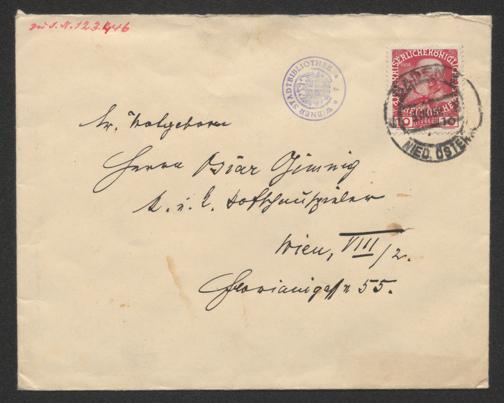 zu I.N. 123.446
WIENER STADTBIBLIOTHEK
KAISERLICHE KÖNIGLICHE
BADEN
NIED. ÖSTERR.
Sr. Wolgeboren
Herrn Oskar
k. u. k. Hofschauspieler
Wien, VIII/2.
Florianigasse 55.